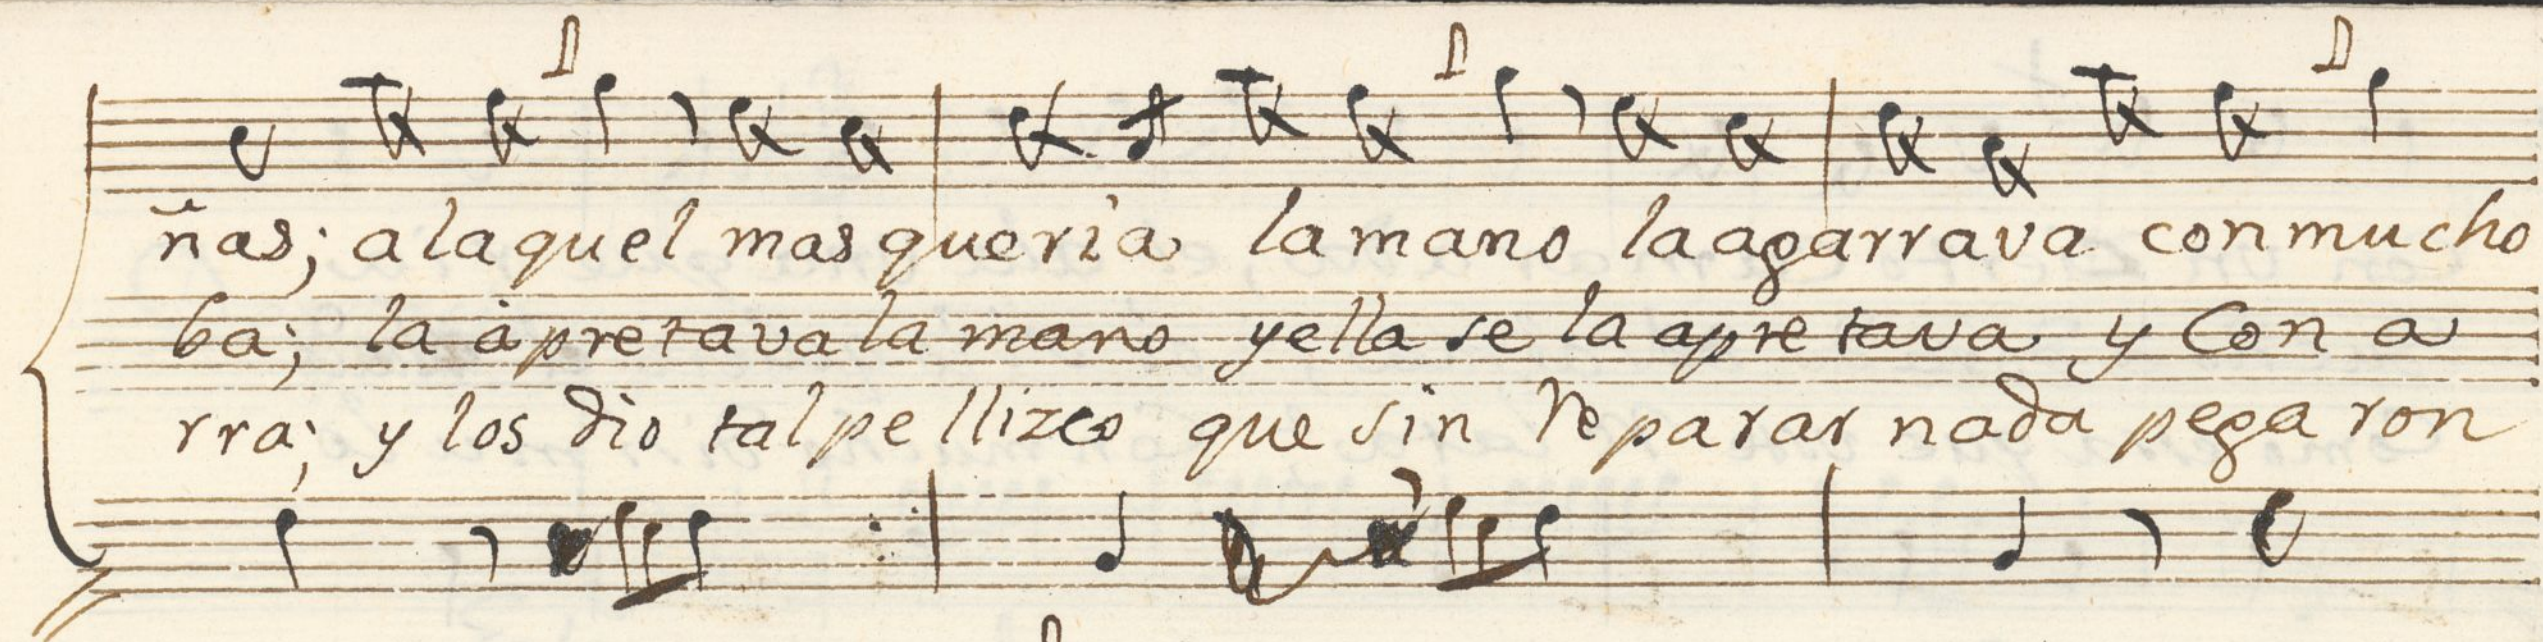 ñas; alaquel mas queria la mano la agarrava con mucho
ba; la apretava la mano y ella se la apretava y Con a
rra; y los dio tal pellizco que sin Reparar nada pegaron